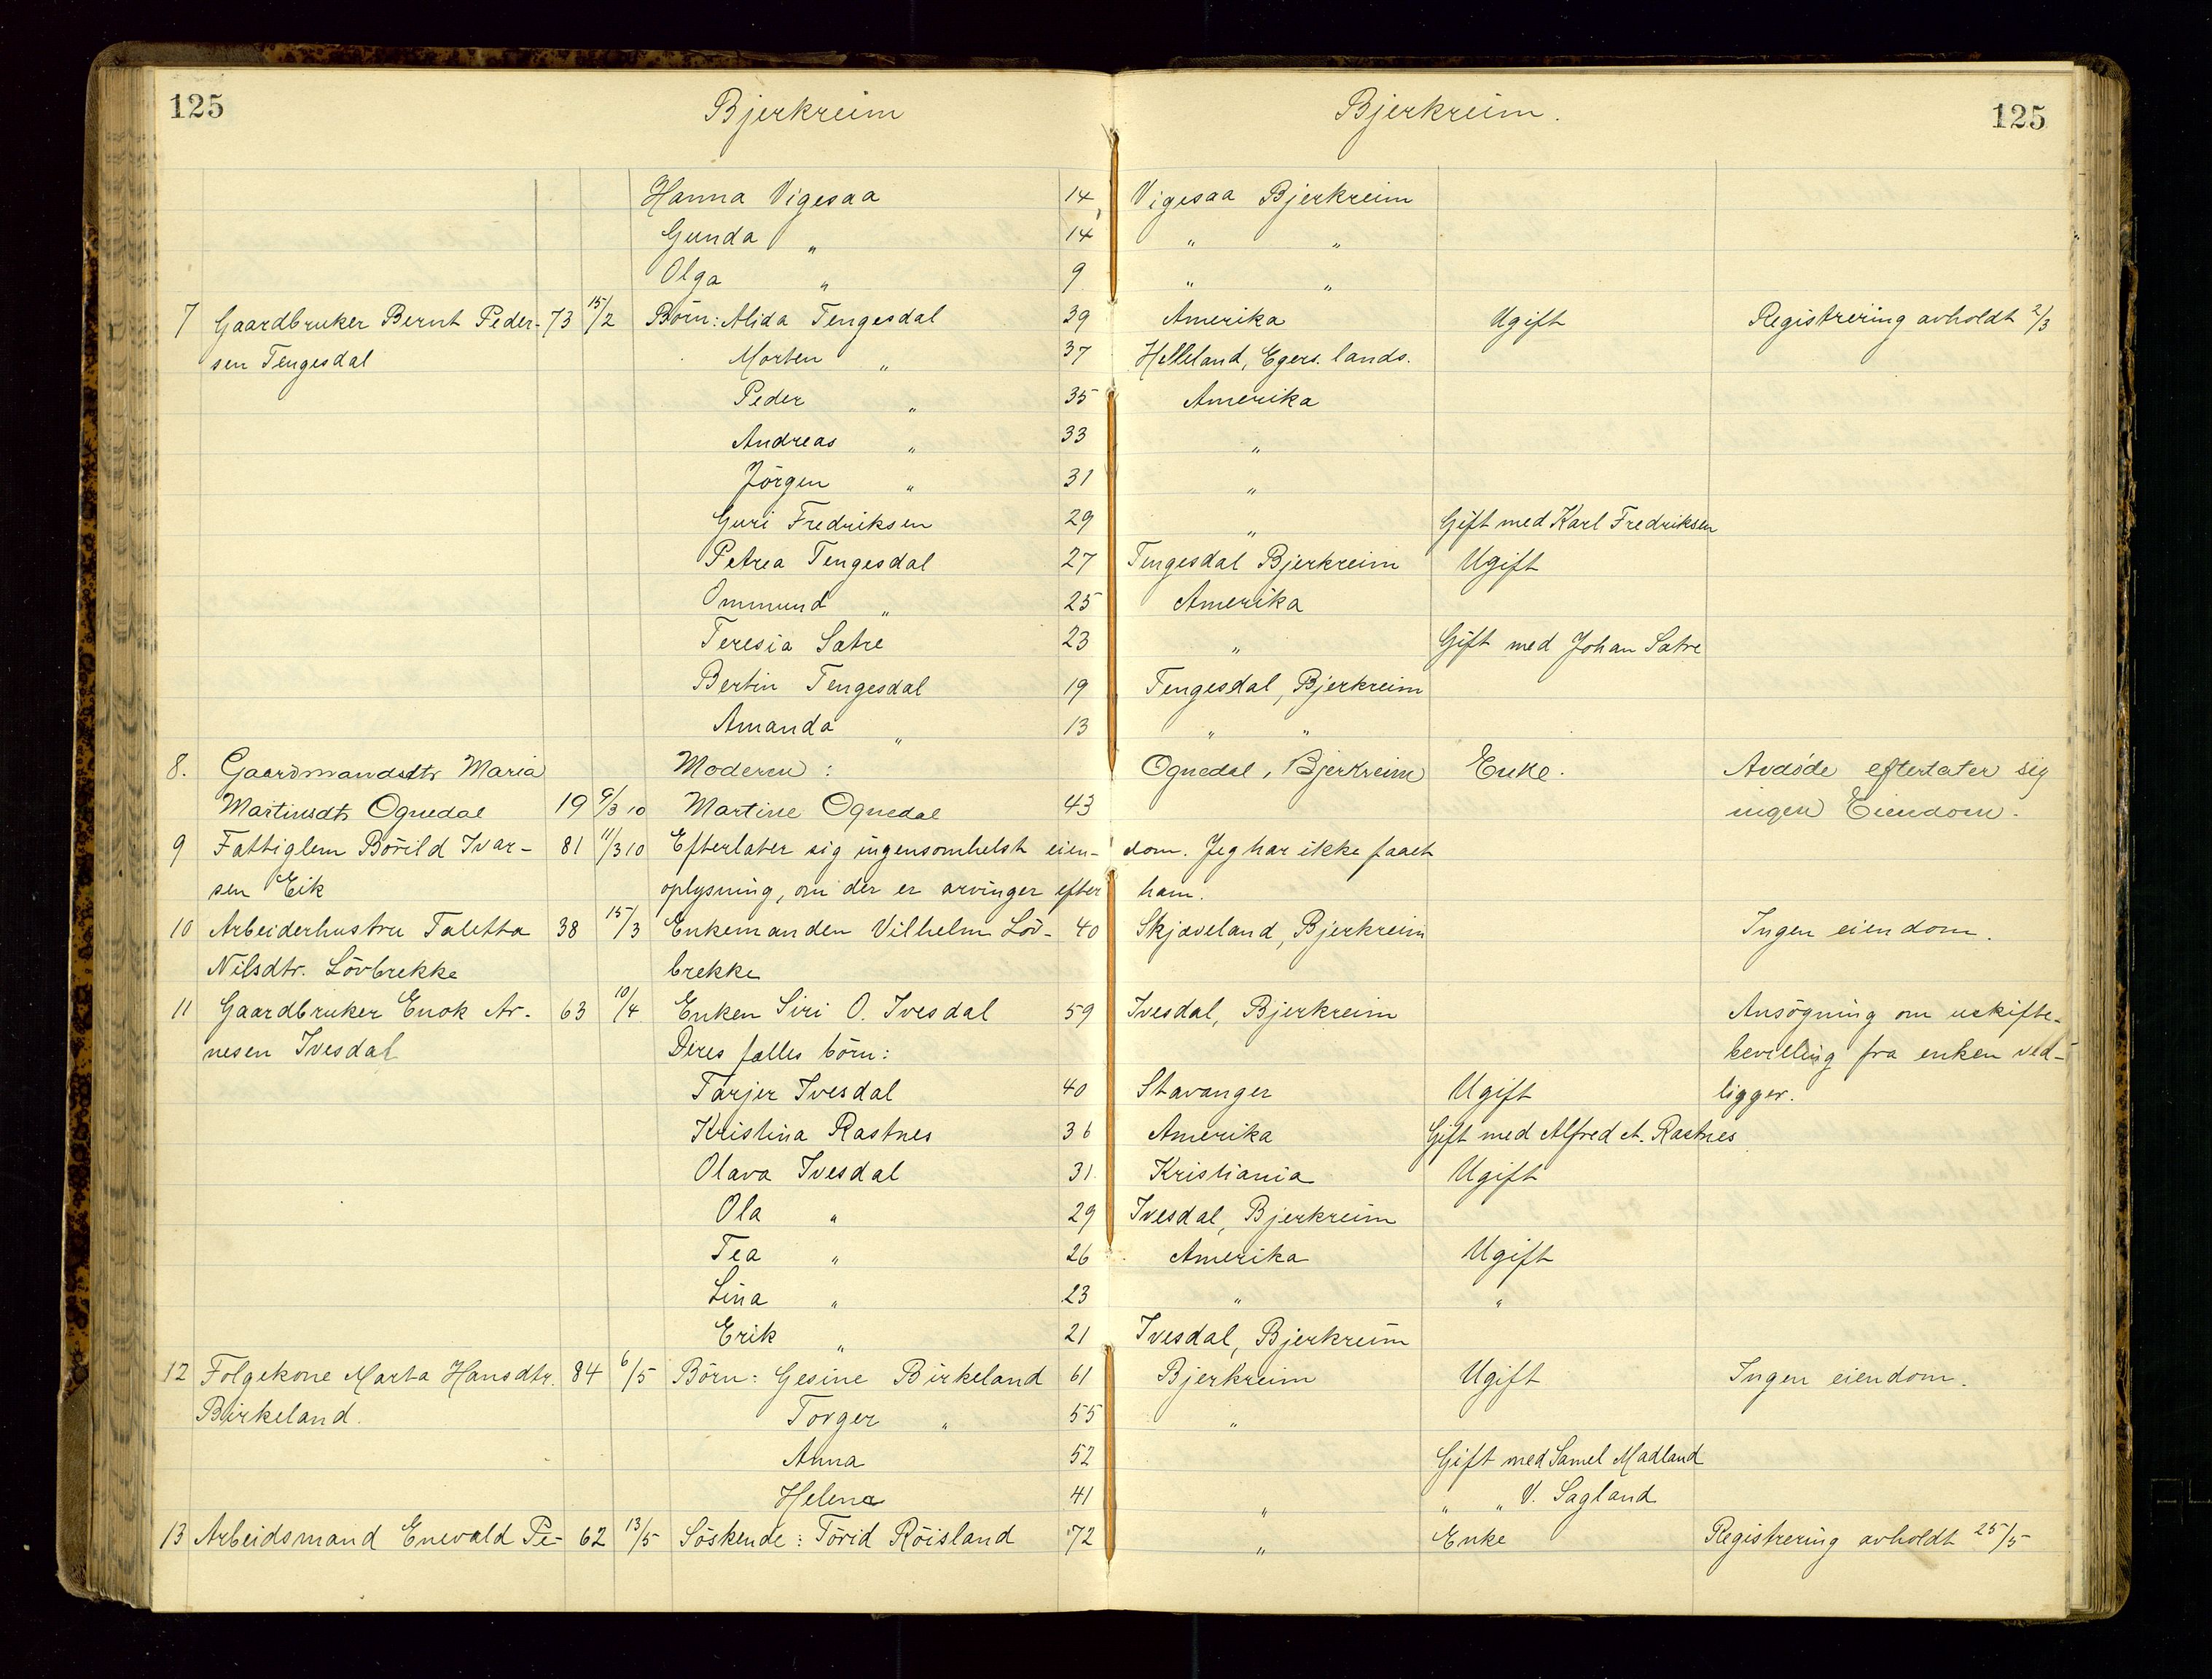 125 Bjerkreim Bjerkreim. 125
Hanna Vigesaa 14 Vigesaa Bjerkreim
Gunda " 14 " "
Olga " 9 " "
7 Gaardbruker Bernt Peder- 73 15/2 Börn: Alida Tengesdal 39 Amerika Ugift Registrering avholdt 2/3
sen Tengesdal Morten " 37 Helleland, Egers. lands.
Peder " 35 Amerika
Andreas " 33 "
Jörgen " 31 "
Guri Fredriksen 29 " Gift med Karl Fredriksen
Petrea Tengesdal 27 Tengesdal Bjerkreim Ugift
Ommund " 25 Amerika
Teresia Satre 23 " Gift med Johan Satre
Bertin Tengesdal 19 Tengesdal, Bjerkreim
Amanda " 13 " "
8. Gaardmandsdtr Maria Moderen: Ognedal, Bjerkreim Enke. Avdøde efterlater sig
Martinsdtr Ognedal 19 9/3 10 Martine Ognedal 43 ingen Eiendom.
9 Fattiglem Börild Ivar- 81 11/3 10 Efterlater sig ingensomhelst eien- dom. Jeg har ikke faaet
sen Eik oplysning, om der er arvinger efter ham.
10 Arbeiderhustru Taletta 38 15/3 Enkemanden Vilhelm Löv- 40 Skjæveland, Bjerkreim Ingen eiendom.
Nilsdtr. Lövbrekke brekke
11 Gaardbruker Enok Ar- 63 10/4 Enken Siri O. Ivesdal 59 Ivesdal, Bjerkreim Ansögning om uskifte-
nesen Ivesdal Deres fælles börn: bevilling fra enken ved-
Tarjer Ivesdal 40 Stavanger Ugift ligger.
Kristina Rastnes 36 Amerika Gift med Alfred A. Rastnes
Olava Ivesdal 31. Kristiania Ugift
Ola " 29 Ivesdal, Bjerkreim
Tea " 26 Amerika Ugift
Lina " 23 " "
Erik " 21 Ivesdal, Bjerkreim
12 Folgekone Marta Hansdtr. 84 6/5 Börn: Gesine Birkeland 61 Bjerkreim Ugift Ingen eiendom.
Birkeland. Torger " 55 "
Anna 52 Gift med Samel Madland
Helene 41 " " " V. Sagland
13 Arbeidsmand Enevald Pe- 62 13/5 Söskende: Törid Röisland 72 " Enke Registrering avholdt 25/5